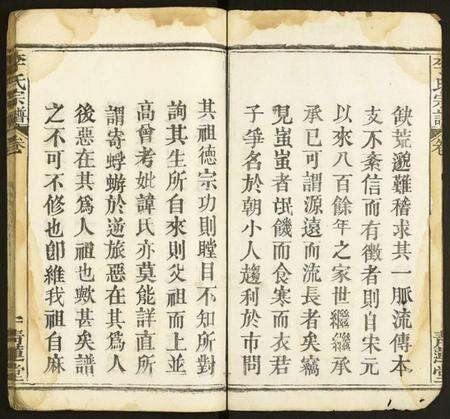 欿荒邈難稽求其一脈流傳本
支不紊信而有徵者則自宋元
以來八百餘年之家世繼繼承
承已可謂源遠而流長者矣竊
見蚩蚩者氓饑而食寒而衣君
子爭名於朝小人趨利於市問
其祖德宗功則瞠目不知所對
詢其生所自來則父祖而上並
高曾考妣諱氏亦莫能詳直所
謂寄蜉蝣於逆旅惡在其爲人
後惡在其爲人祖也歟甚矣譜
之不可不修也卽維我祖自麻
李氏宗譜
卷
青蓮堂
李氏宗譜
卷
青蓮堂